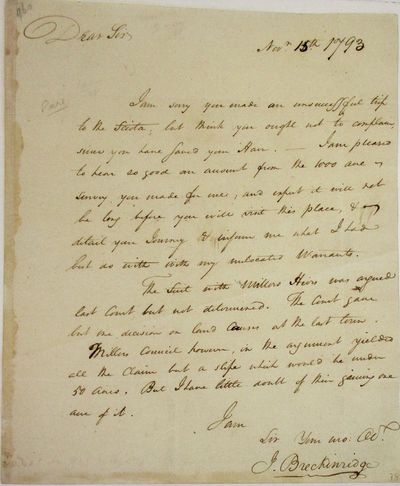 Dear Sir
Novr 15th 1793
I am sorry you made an unsuccessful trip
to the Sciota, but think you ought not to complain,
since you have saved your Hair. — I am pleased
to hear so good an account from the 1000 acre
survey you made for me; and expect it will not
be long before you will visit this place, &
detail your Journey & inform me what I had
best do with my unlocated Warrants.
The Suit with Millers Heirs was argued
last Court but not determined. The Court gave
but one decision on land Causes at the last term.
Millers Council however, in the argument yielded
all the Claim but a slipe which would be under
50 Acres. But I have little doubt of their gaining one
acre of it.
I am
Sir Your mo:
J. Breckinridge